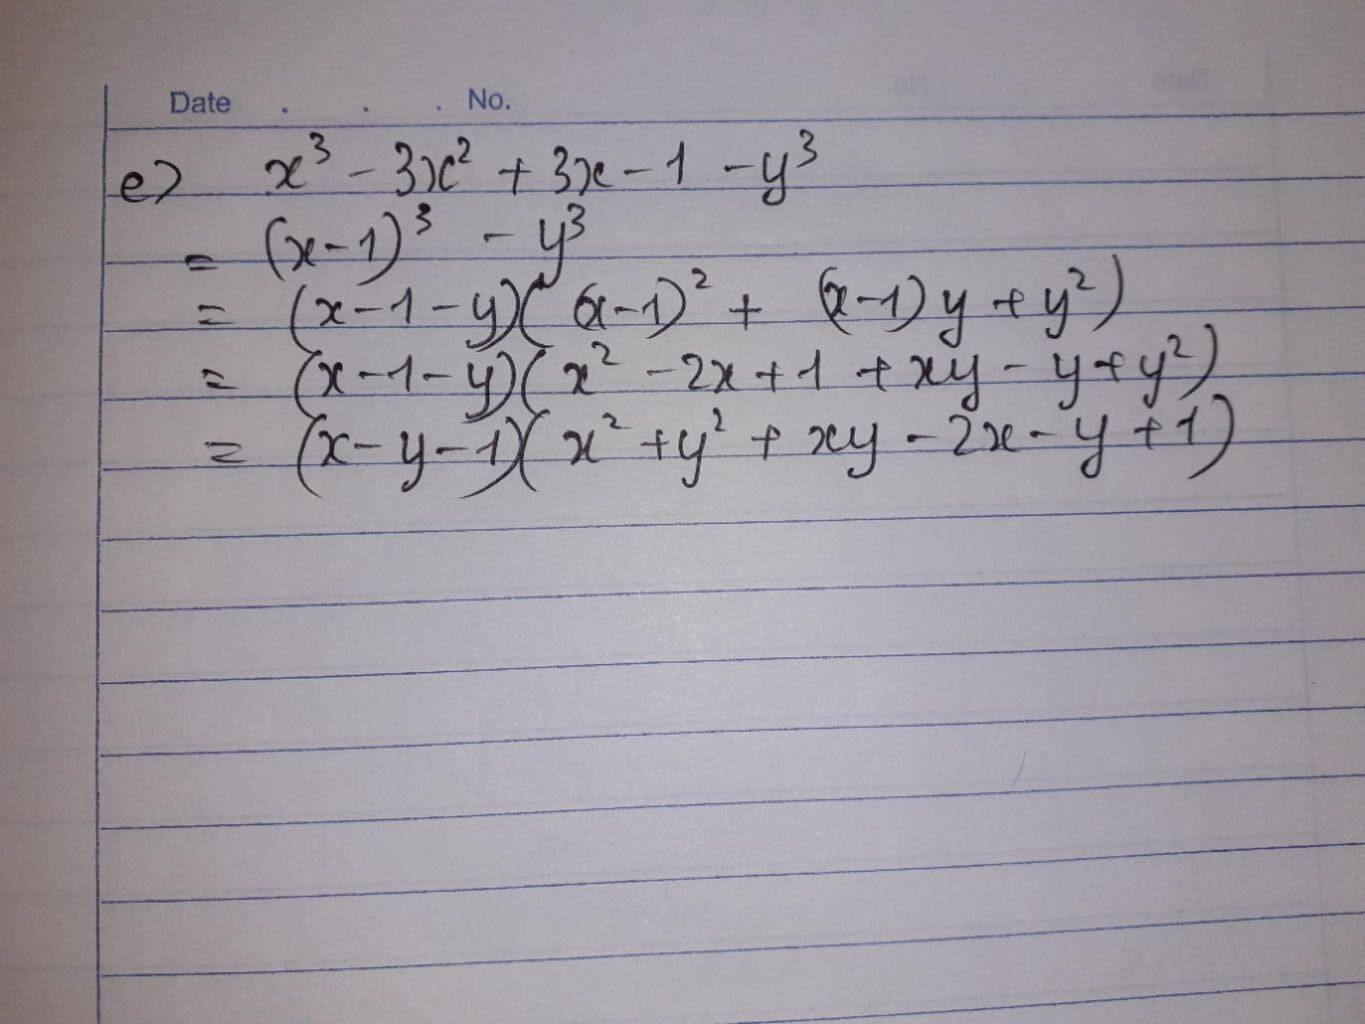 Date . . . No.
e) x³ - 3x² + 3x - 1 - y³
= (x-1)³ - y³
= (x-1-y)((x-1)² + (x-1)y + y²)
= (x-1-y)(x² - 2x + 1 + xy - y + y²)
= (x-y-1)(x² + y² + xy - 2x - y + 1)